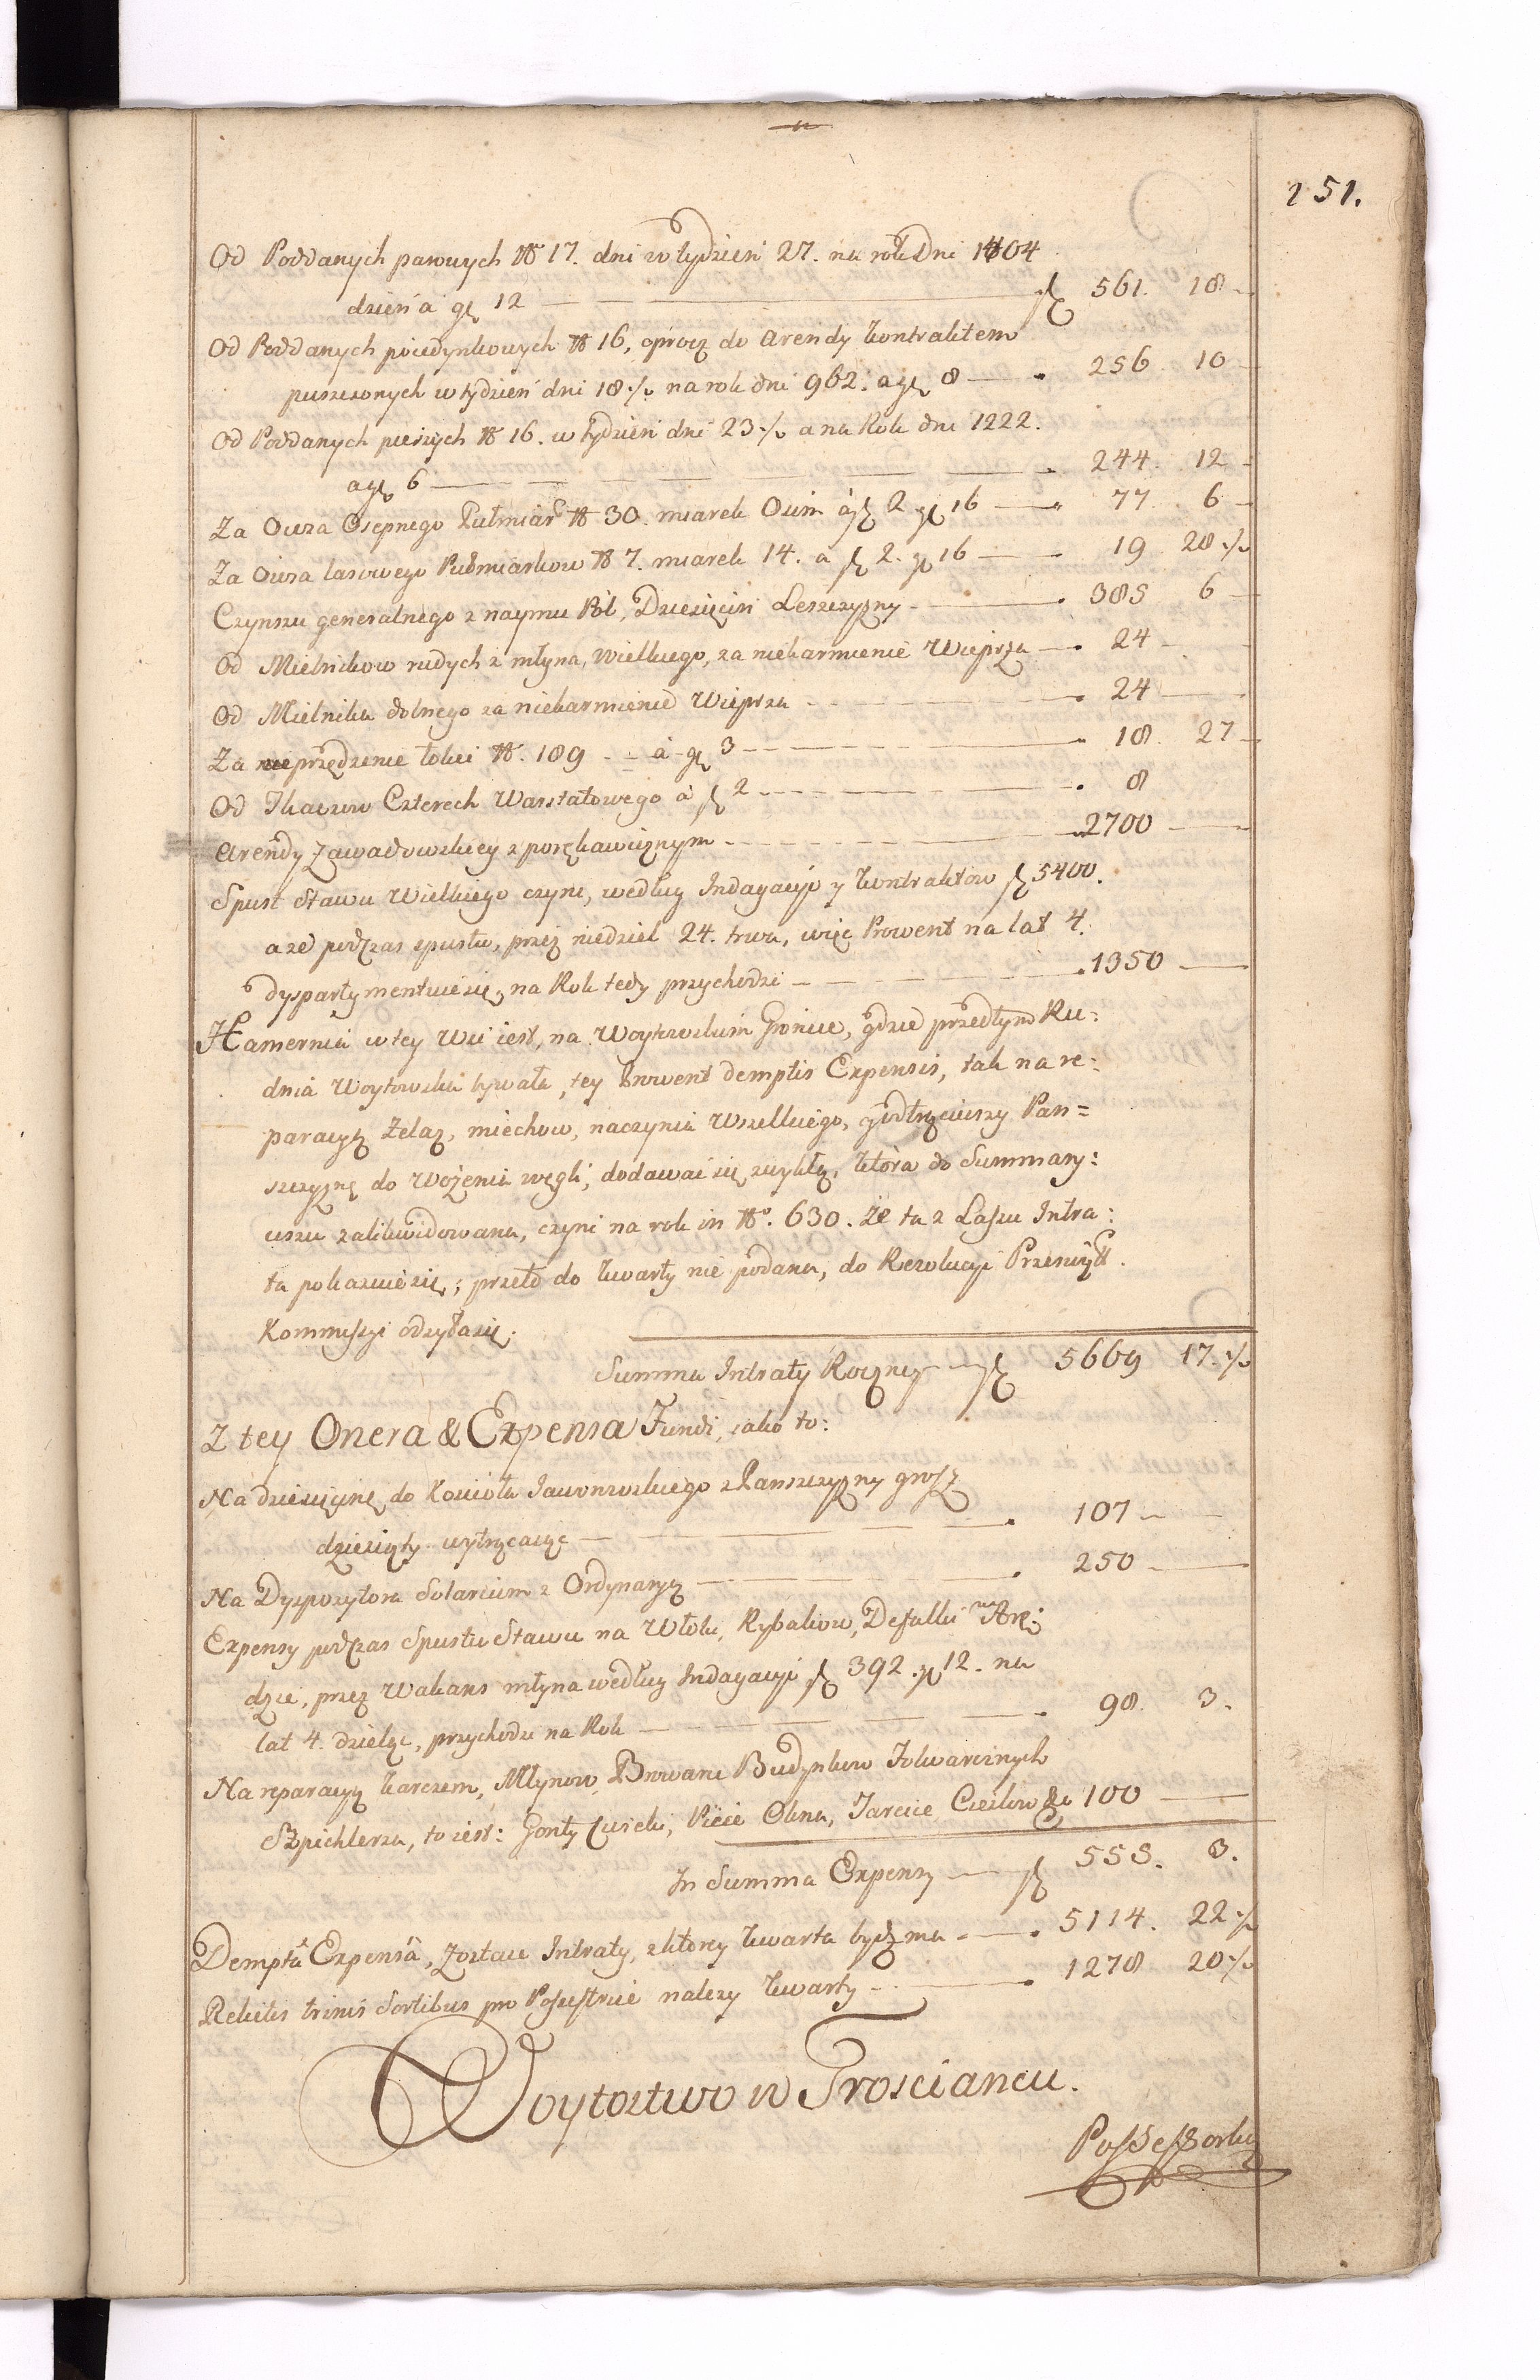 151.
Od Poddanych parowych No 17. dni w tydzień 27. na rok Dni 1404
dzień a gr 12 — fl 561. 18
Od Poddanych poiedynkowych No 16, oprocz do Arendy kontraktem
puszczonych w tydzień dni 18 ·/. na rok dni 962. a gr 8 — 256 10
Od Poddanych pieszych No 16. w tydzień dni 23 ·/. a na Rok dni 1222.
a gr 6 — 244. 12
Za Owsa Osepnego Pułmiar No 30. miarek Osim á fl 2 gr 16 — 77. 6
Za Owsa lasowego Pułmiarkow No 7. miarek 14. a fl 2. gr 16 — 19 28 ·/.
Czynszu generalnego z naymu Pól, Dziesięcin Leszczyzny — 385 6
Od Mielnikow rudych z młyna, Wielkiego, za niekarmienie Wieprza — 24
Od Mielnika dolnego za niekarmienie Wieprza — 24
Za nieprzędzenie łokci No. 189 á gr 3 — 18. 27
Od Tkaczow Czterech Warstatowego á fl 2 — 8
Arendy Zawadowskiey z porękawicznym — 2700
Spust Stawu Wielkiego czyni, według Indagacyi y kontraktow fl 5400.
a ze podczas spustu, przez niedziel 24. trwa, więc Prowent na lat 4.
dyspartymentuie się, na Rok tedy przychodzi — 1350
Hamernia w tey Wsi iest, na Woytowskim Gróncie, gdzie przedtym Ru:
dnia Woytowska bywała, tey Prowent demptis Expensis, tak na re:
paracyą Zelaz, miechow, naczynia Wszelkiego, y odtrąciwszy Pan=
szczyznę do Wożenia węgli, dodawać się zwykłą, która do Summary:
uszu zalikwidowana, czyni na rok in No. 630. Ze ta z Lasu Intra:
ta pokazuie się; przeto do kwarty nie podana, do Rezolucyi Przeswiet.
Kommissyi odsyła się.
Summa Intraty Roczney — fl 5669 17 ·/.
Z tey Onera & Expensa Fundi, iako to:
Na dziesięcinę do Kościoła Jaworowskiego z Panszczyzny grosz
dziesiąty wytrącaiąc — 107
Na Dyspozytora Solarium z Ordynaryą — 250
Expensy podczas Spustu Stawu na Włoku, Rybakow, Defalki na Arę:
dzie, przez Wakans młyna według Indagacyi fl 392. gr 12. na
lat 4. dzieląc, przychodzi na Rok — 98. 3.
Na reparacyą karczem, Młynow, Browaru Budynkow Folwarcznych
Szpichlerza, to iest: Gonty Cwieki, Piece Okna, Tarcice Cieslow &c 100
In Summa Expensy — fl 555. 3.
Demptâ Expensâ, Zostaie Intraty, z ktorey kwarta bydz ma — 5114. 22 ·/.
Relictis trinis Sortibus pro Possessore nalezy kwarty — 1278 20 ·/.
Woytostwo w Trosciancu.
Possessorka